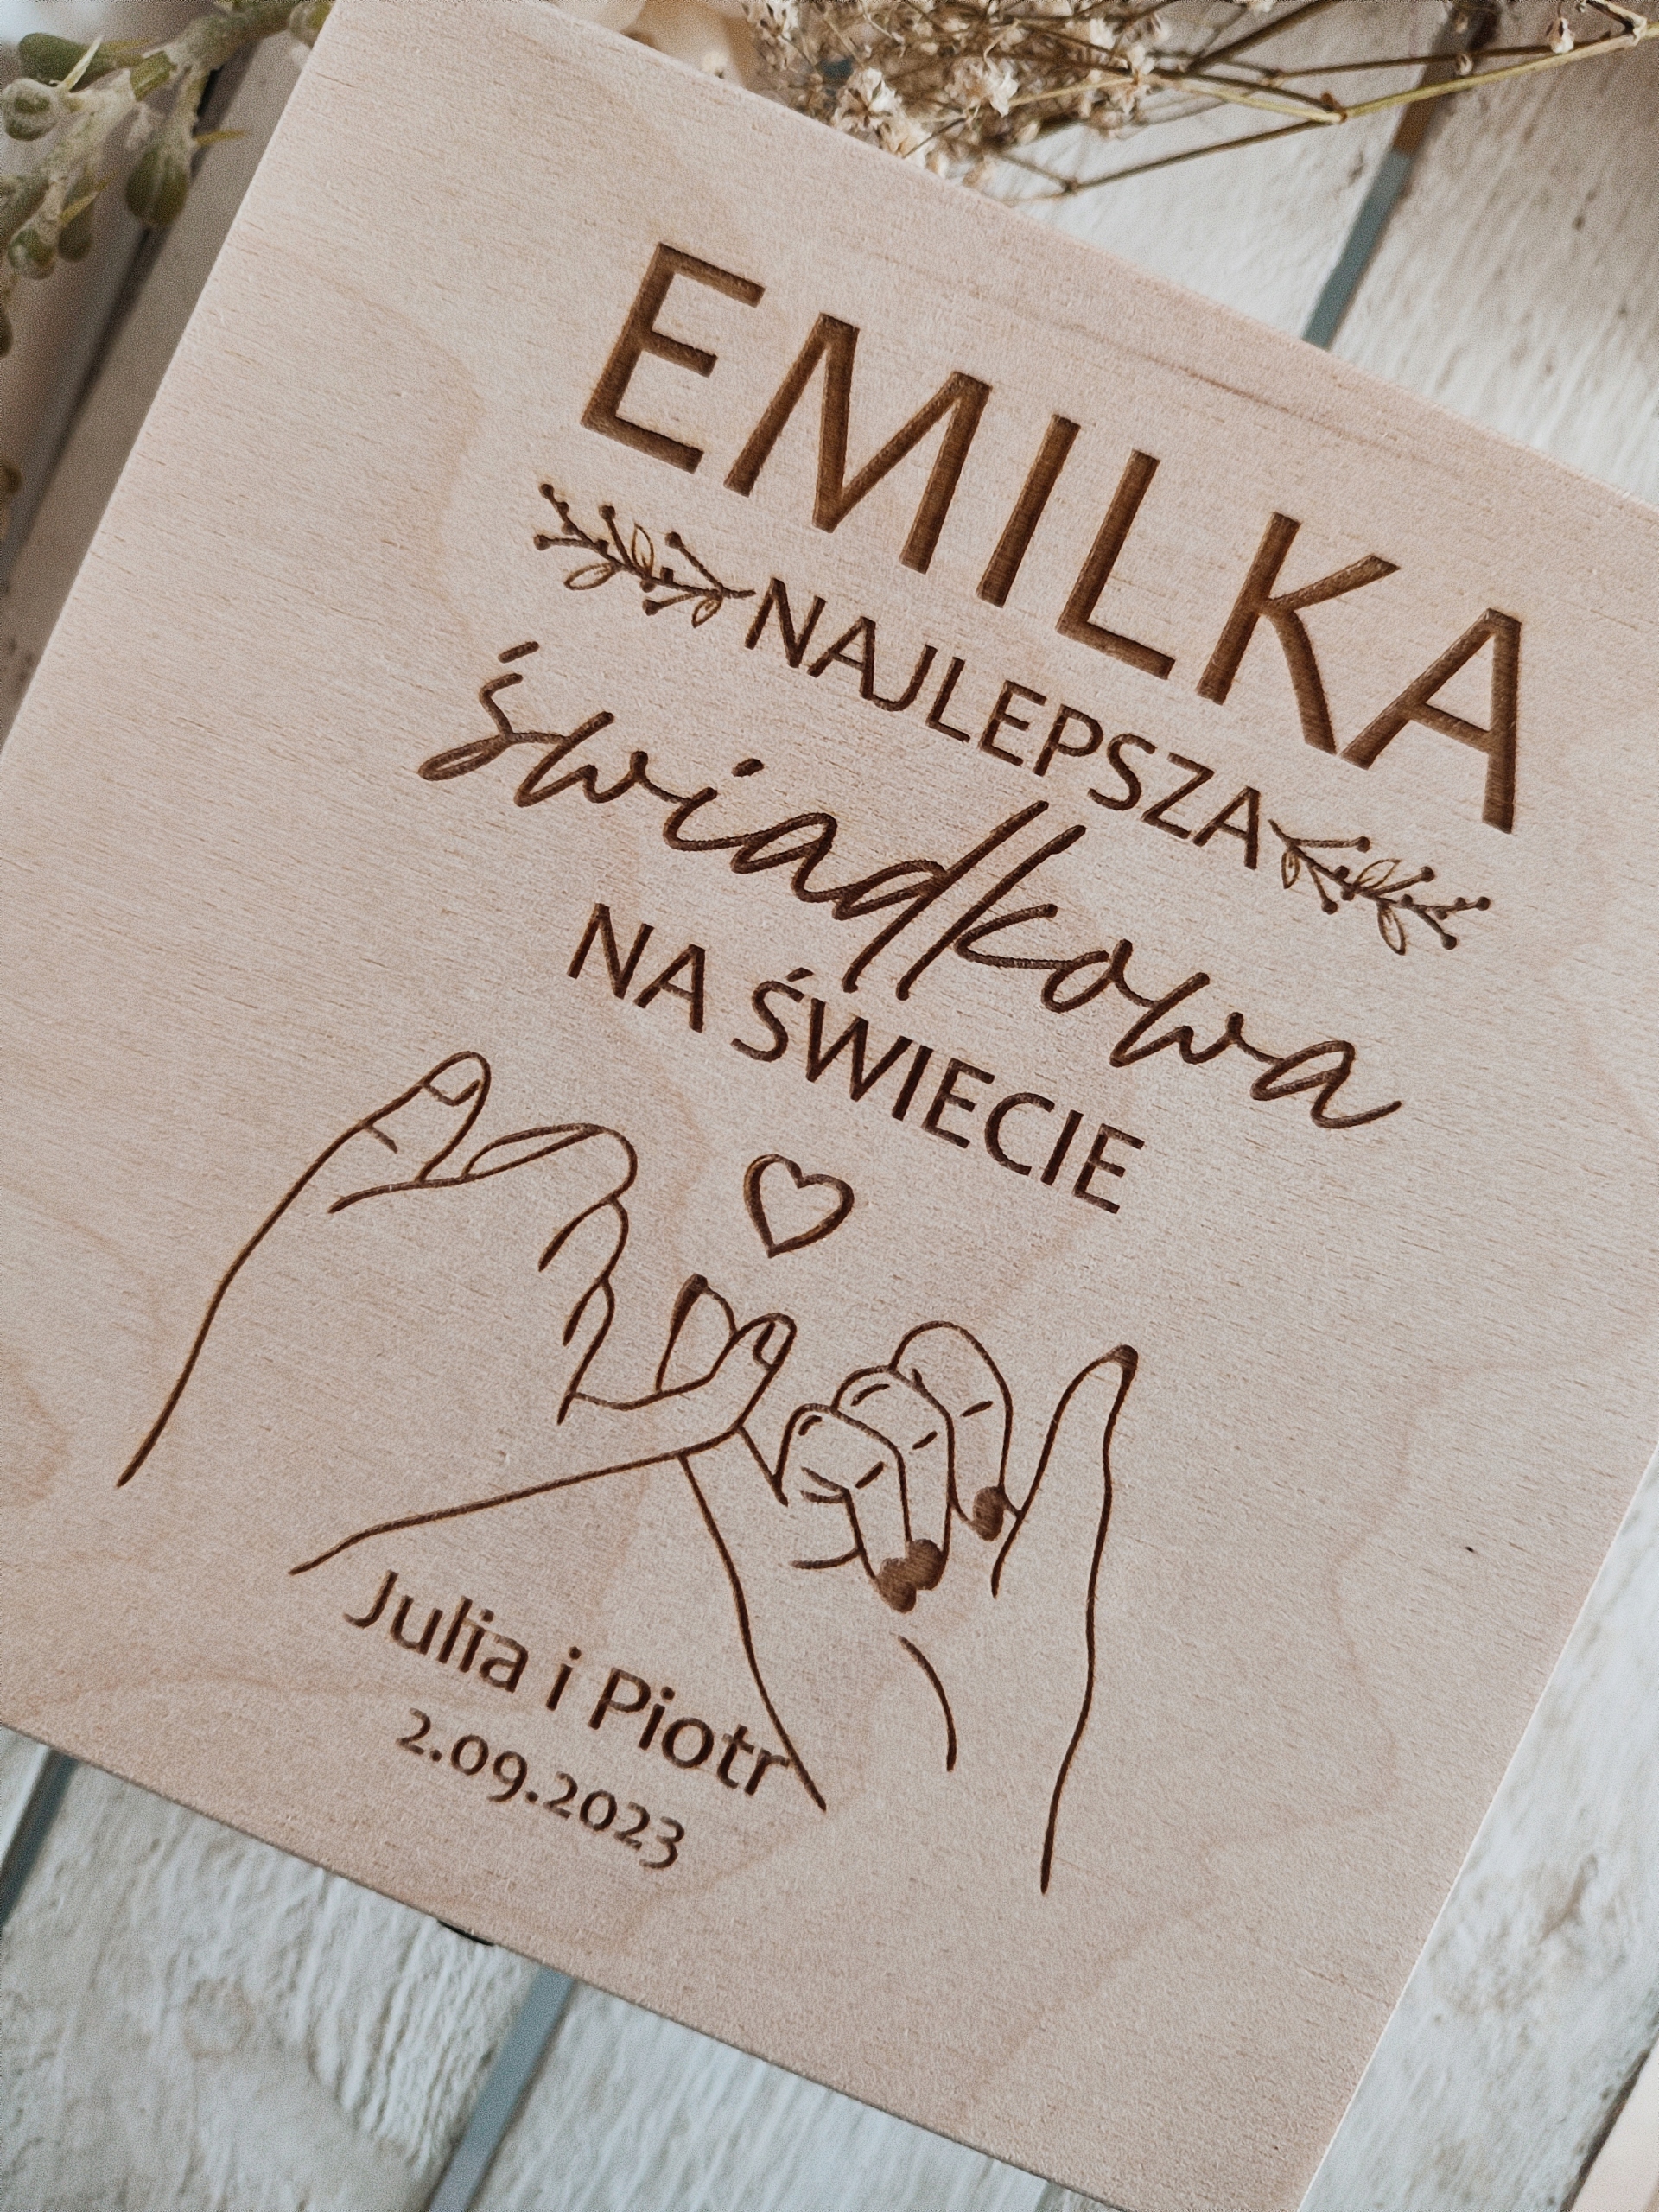 EMILKA
NAJLEPSZA
świadkowa
NA ŚWIECIE
Julia i Piotr
2.09.2023